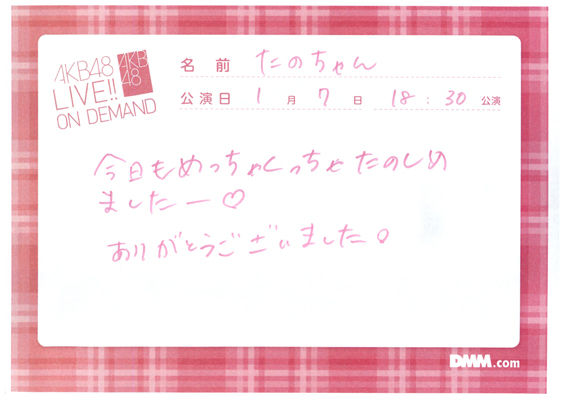 AKB48
LIVE!!
ON DEMAND
AKB
48
名前 たのちゃん
公演日 1月7日 18:30 公演
今日もめっちゃくっちゃたのしめ
ましたー♡
ありがとうございました♡
DMM.com